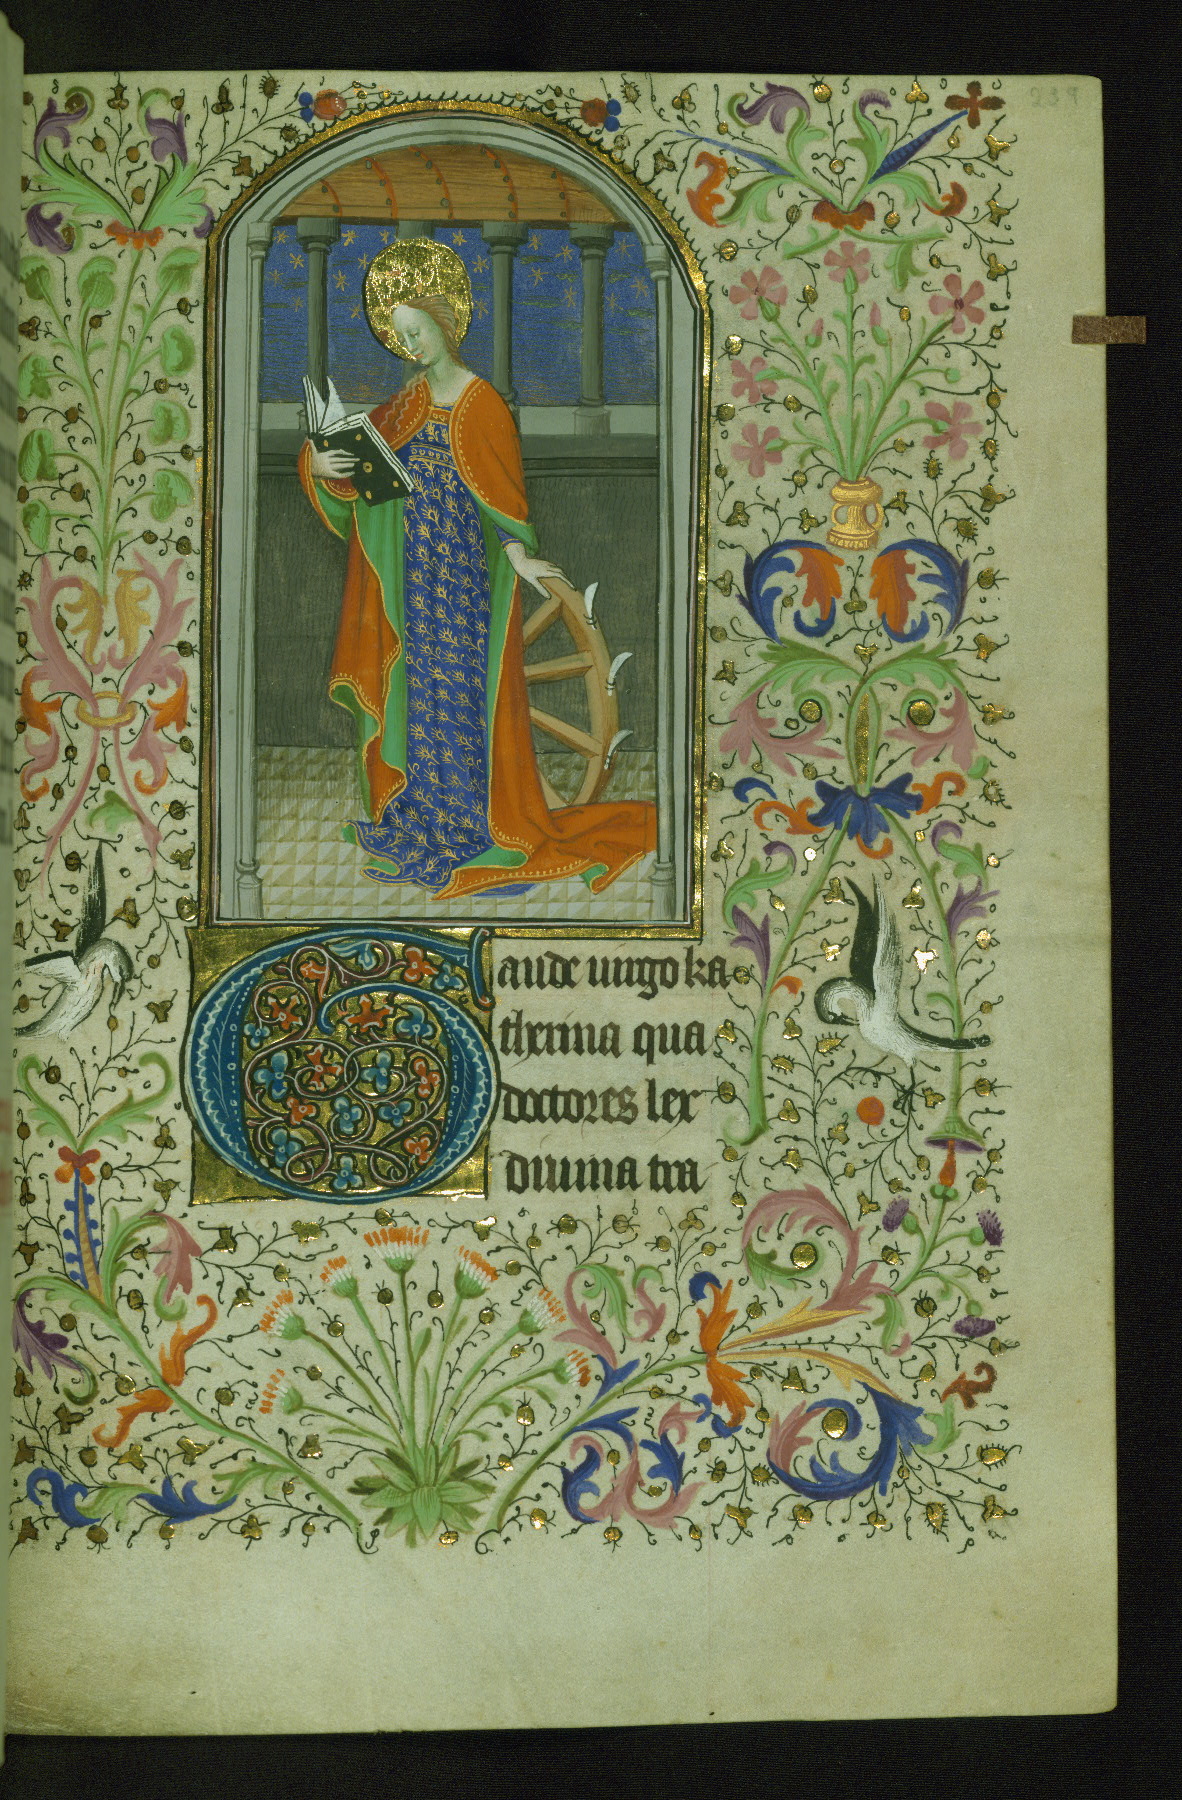 239
Gaude uirgo ka
therina qua
doctores lex
diuina tra